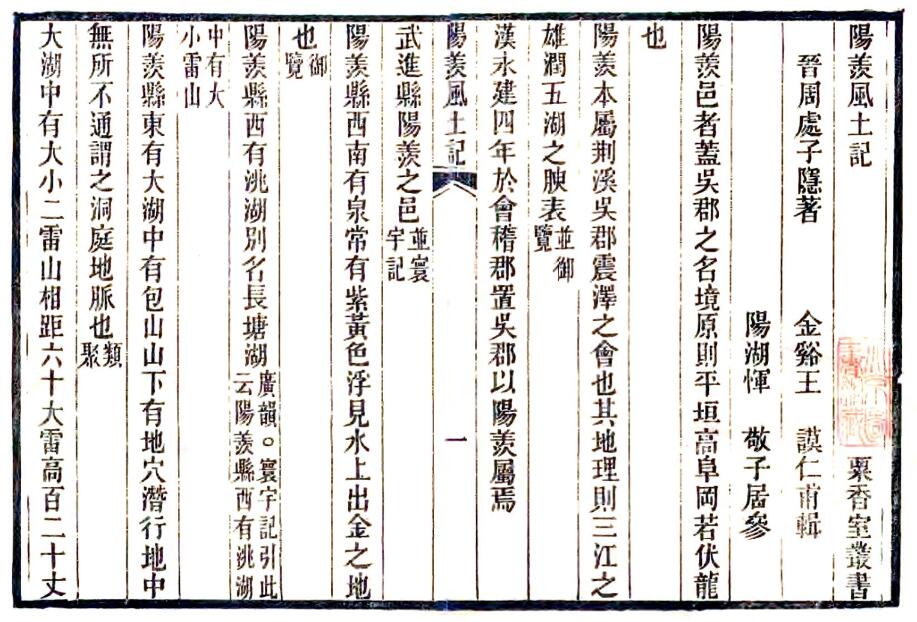 陽羨風土記 粟香室叢書
晉周處子隱著 金谿王 謨仁甫輯
陽湖惲 敬子居參
陽羨邑者蓋吳郡之名境原則平垣高阜岡若伏龍
也
陽羨本屬荆溪吳郡震澤之會也其地理則三江之
雄潤五湖之腴表並御覽
漢永建四年於會稽郡置吳郡以陽羨屬焉
陽羨風土記 一
武進縣陽羨之邑並寰宇記
陽羨縣西南有泉常有紫黃色浮見水上出金之地
也御覽
陽羨縣西有洮湖別名長塘湖廣韻○寰宇記引此云陽羨縣西有洮湖
中有大小雷山
陽羨縣東有大湖中有包山山下有地穴潛行地中
無所不通謂之洞庭地脈也類聚
大湖中有大小二雷山相距六十大雷高百二十丈